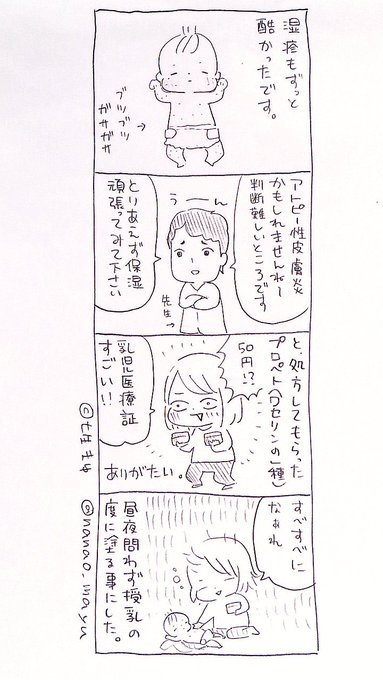 湿疹もずっと
酷かったです。
ブツブツ
ガサガサ
アトピー性皮膚炎
かもしれませんねー
判断難しいところです
うーーん
先生
とりあえず保湿
頑張ってみて下さい
と、処方してもらった
プロペト(ワセリンの一種)
50円!?
乳児医療証
すごい!!
ありがたい。
すべすべに
なぁれ
昼夜問わず授乳の
度に塗る事にした。
@nanao.mayu